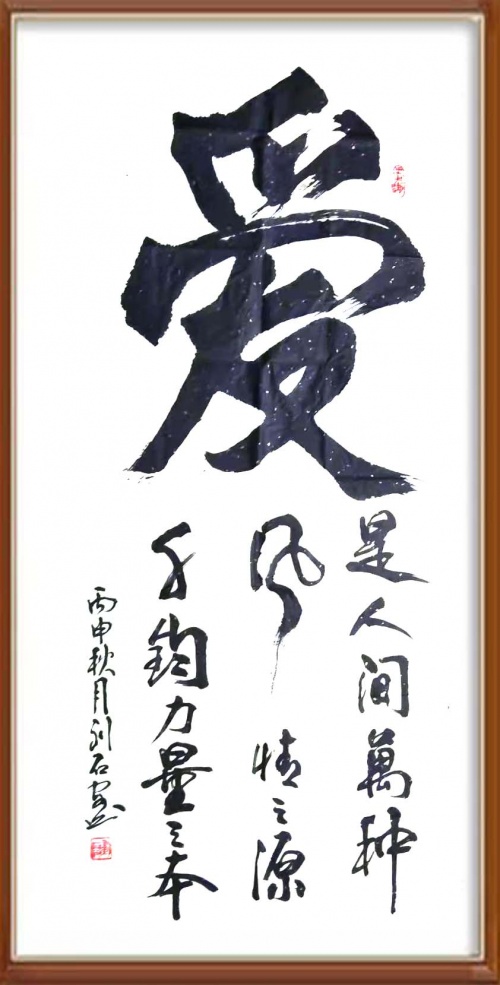 爱
是人间萬种
风情之源
千鈞力量之本
丙申秋月刘石宝书